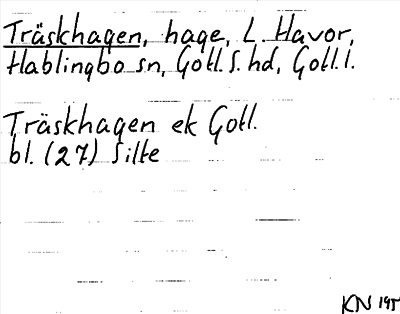 Träskhagen, hage, L. Havor,
Hablingbo sn, Gotl. S. hd, Gotl. l.
Träskhagen ek Gotl.
bl. (27) Silte
KN